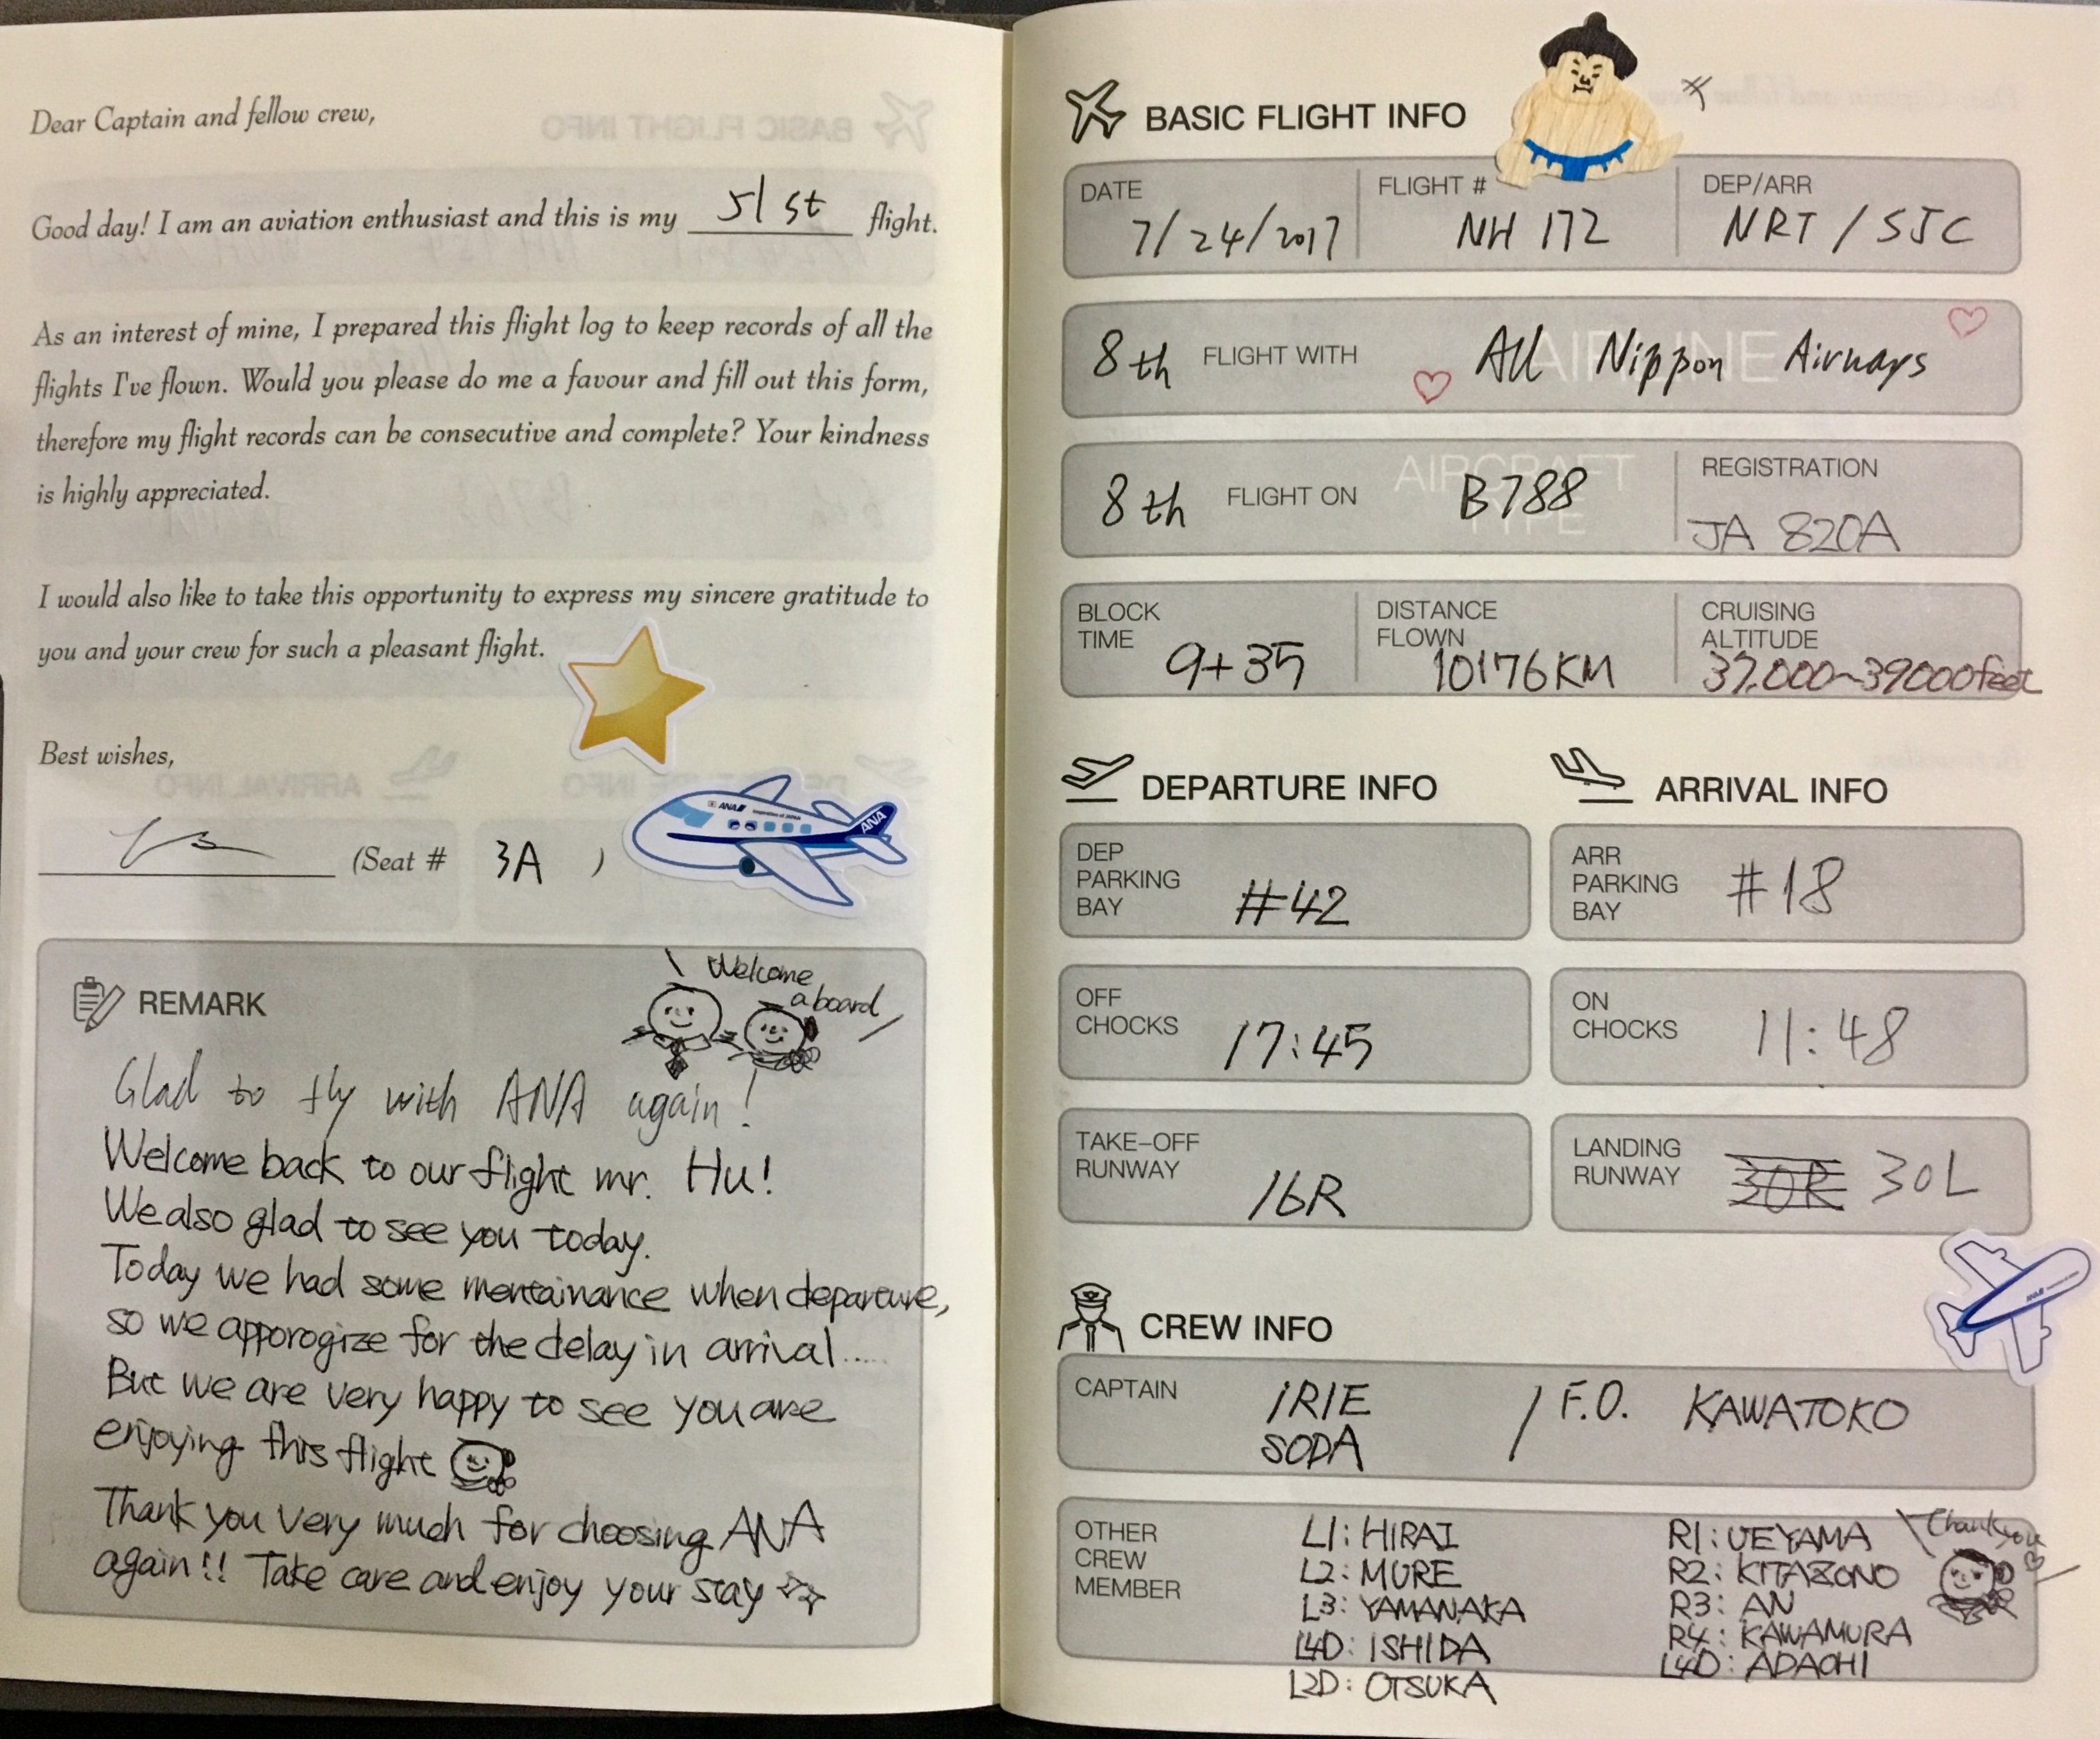 Dear Captain and fellow crew,
Good day! I am an aviation enthusiast and this is my 51st flight.
As an interest of mine, I prepared this flight log to keep records of all the
flights I've flown. Would you please do me a favour and fill out this form,
therefore my flight records can be consecutive and complete? Your kindness
is highly appreciated.
I would also like to take this opportunity to express my sincere gratitude to
you and your crew for such a pleasant flight.
Best wishes,
(Seat # 3A )
ANA
ANA
REMARK
Welcome
aboard
Glad to fly with ANA again!
Welcome back to our flight mr. Hu!
We also glad to see you today.
Today we had some mentainance when departure,
so we apporogize for the delay in arrival.....
But we are very happy to see you are
enjoying this flight
Thank you very much for choosing ANA
again!! Take care and enjoy your stay
BASIC FLIGHT INFO
DATE 7/24/2017
FLIGHT # NH 172
DEP/ARR NRT / SJC
8th FLIGHT WITH AIRLINE All Nippon Airways
8th FLIGHT ON AIRCRAFT TYPE B788
REGISTRATION JA 820A
BLOCK
TIME 9+35
DISTANCE
FLOWN 10176KM
CRUISING
ALTITUDE 37,000~39000feet
DEPARTURE INFO
ARRIVAL INFO
DEP
PARKING
BAY #42
ARR
PARKING
BAY #18
OFF
CHOCKS 17:45
ON
CHOCKS 11:48
TAKE-OFF
RUNWAY 16R
LANDING
RUNWAY 30R 30L
ANA
CREW INFO
CAPTAIN IRIE / F.O. KAWATOKO
SODA
OTHER
CREW
MEMBER
L1: HIRAI
L2: MURE
L3: YAMANAKA
L4D: ISHIDA
L2D: OTSUKA
R1: UEYAMA
R2: KITAZONO
R3: AN
R4: KAWAMURA
L4D: ADACHI
Thank you